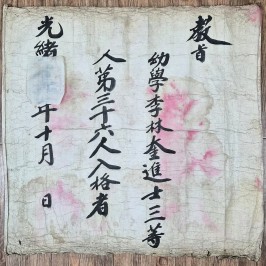 敎旨
幼學李林奎進士三等
人第三十六人入格者
光緖
年十月 日